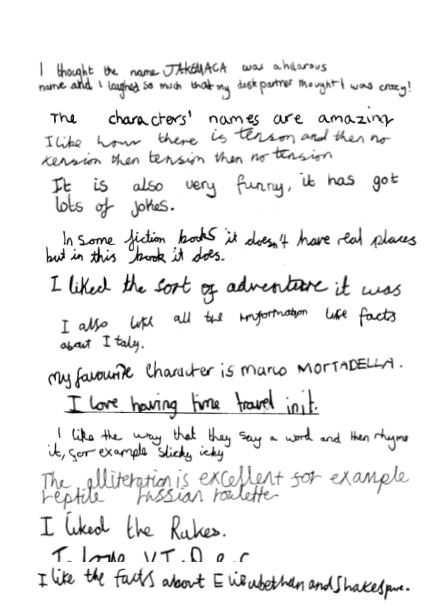 I thought the name JAKEMACA was a hilarous
name and I laughed so much that my desk partner thought I was crazy!
The characters' names are amazing
I like how there is tension and then no
tension then tension then no tension
It is also very funny, it has got
lots of jokes.
In some fiction books it doesn't have real places
but in this book it does.
I liked the sort of adventure it was
I also like all the information like facts
about Italy.
My favourite character is marco MORTADELLA.
I love having time travel in it.
I like the way that they say a word and then rhyme
it, for example slicky icky
The alliteration is excellent for example
reptile russian roulette
I liked the Rukes.
I like the facts about and Shakespure.